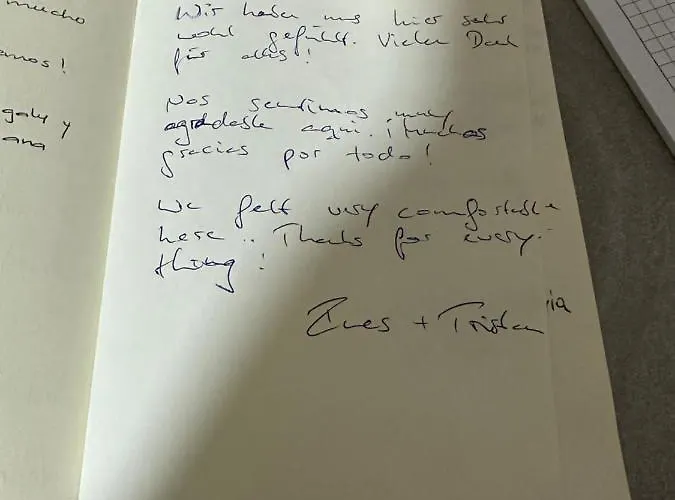 mucho
anos!
galy y
ana
Wir haben uns hier sehr
wohl gefühlt. Vielen Dank
für alles!
Nos sentimos muy
agradable aqui. ¡Muchas
gracias por todo!
We felt very comfortable
here.. Thanks for every-
thing!
Ines + Tristan